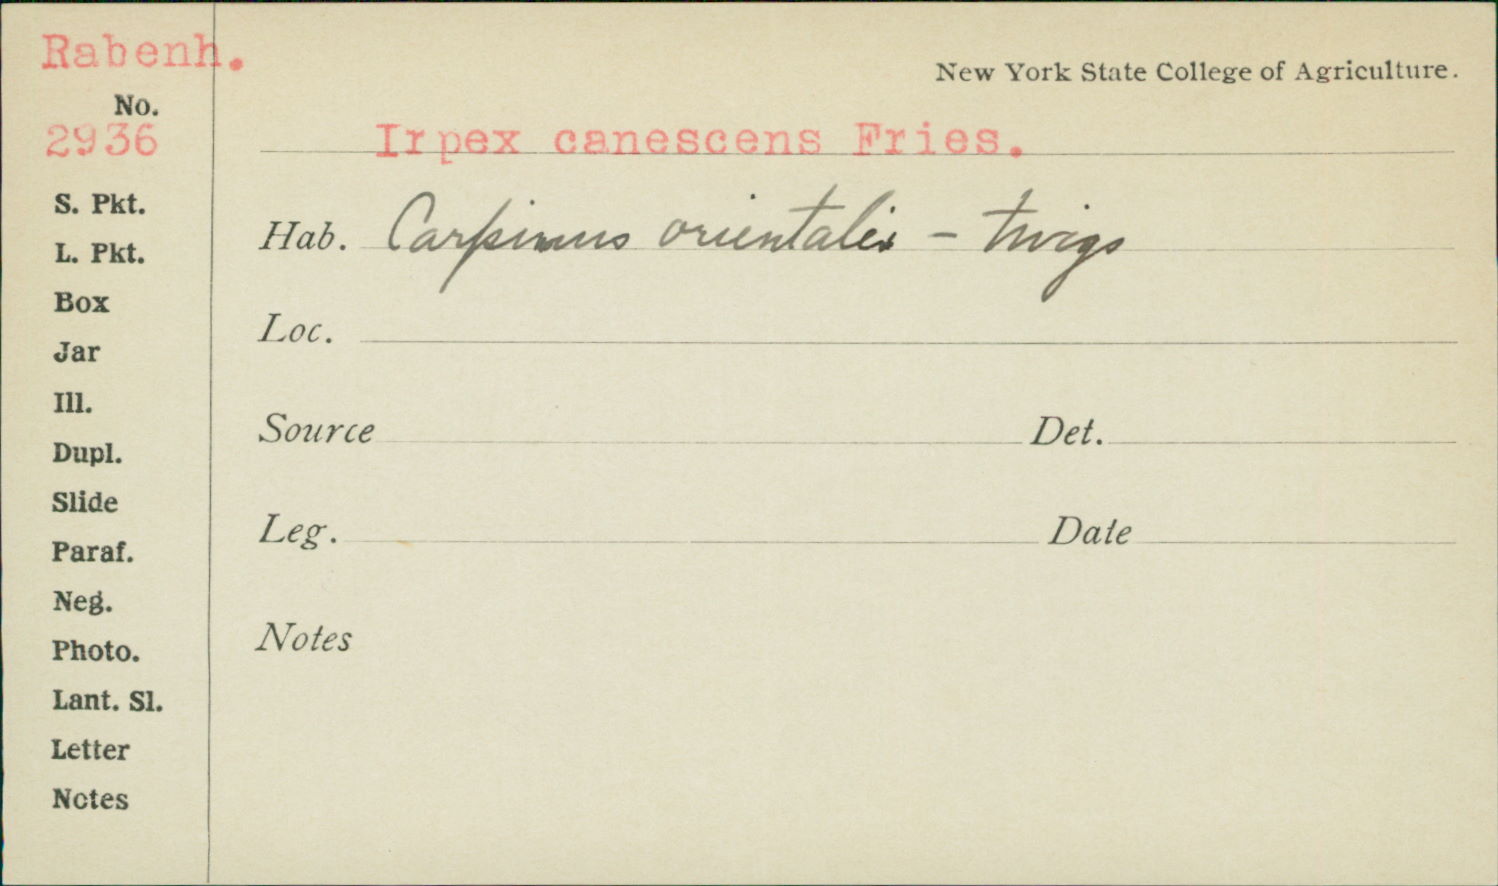 Rabenh.
New York State College of Agriculture.
No.
2936
Irpex canescens Fries.
S. Pkt.
Hab. Carpinus orientalis - twigs
L. Pkt.
Box
Loc.
Jar
Ill.
Source Det.
Dupl.
Slide
Leg. Date
Paraf.
Neg.
Notes
Photo.
Lant. Sl.
Letter
Notes